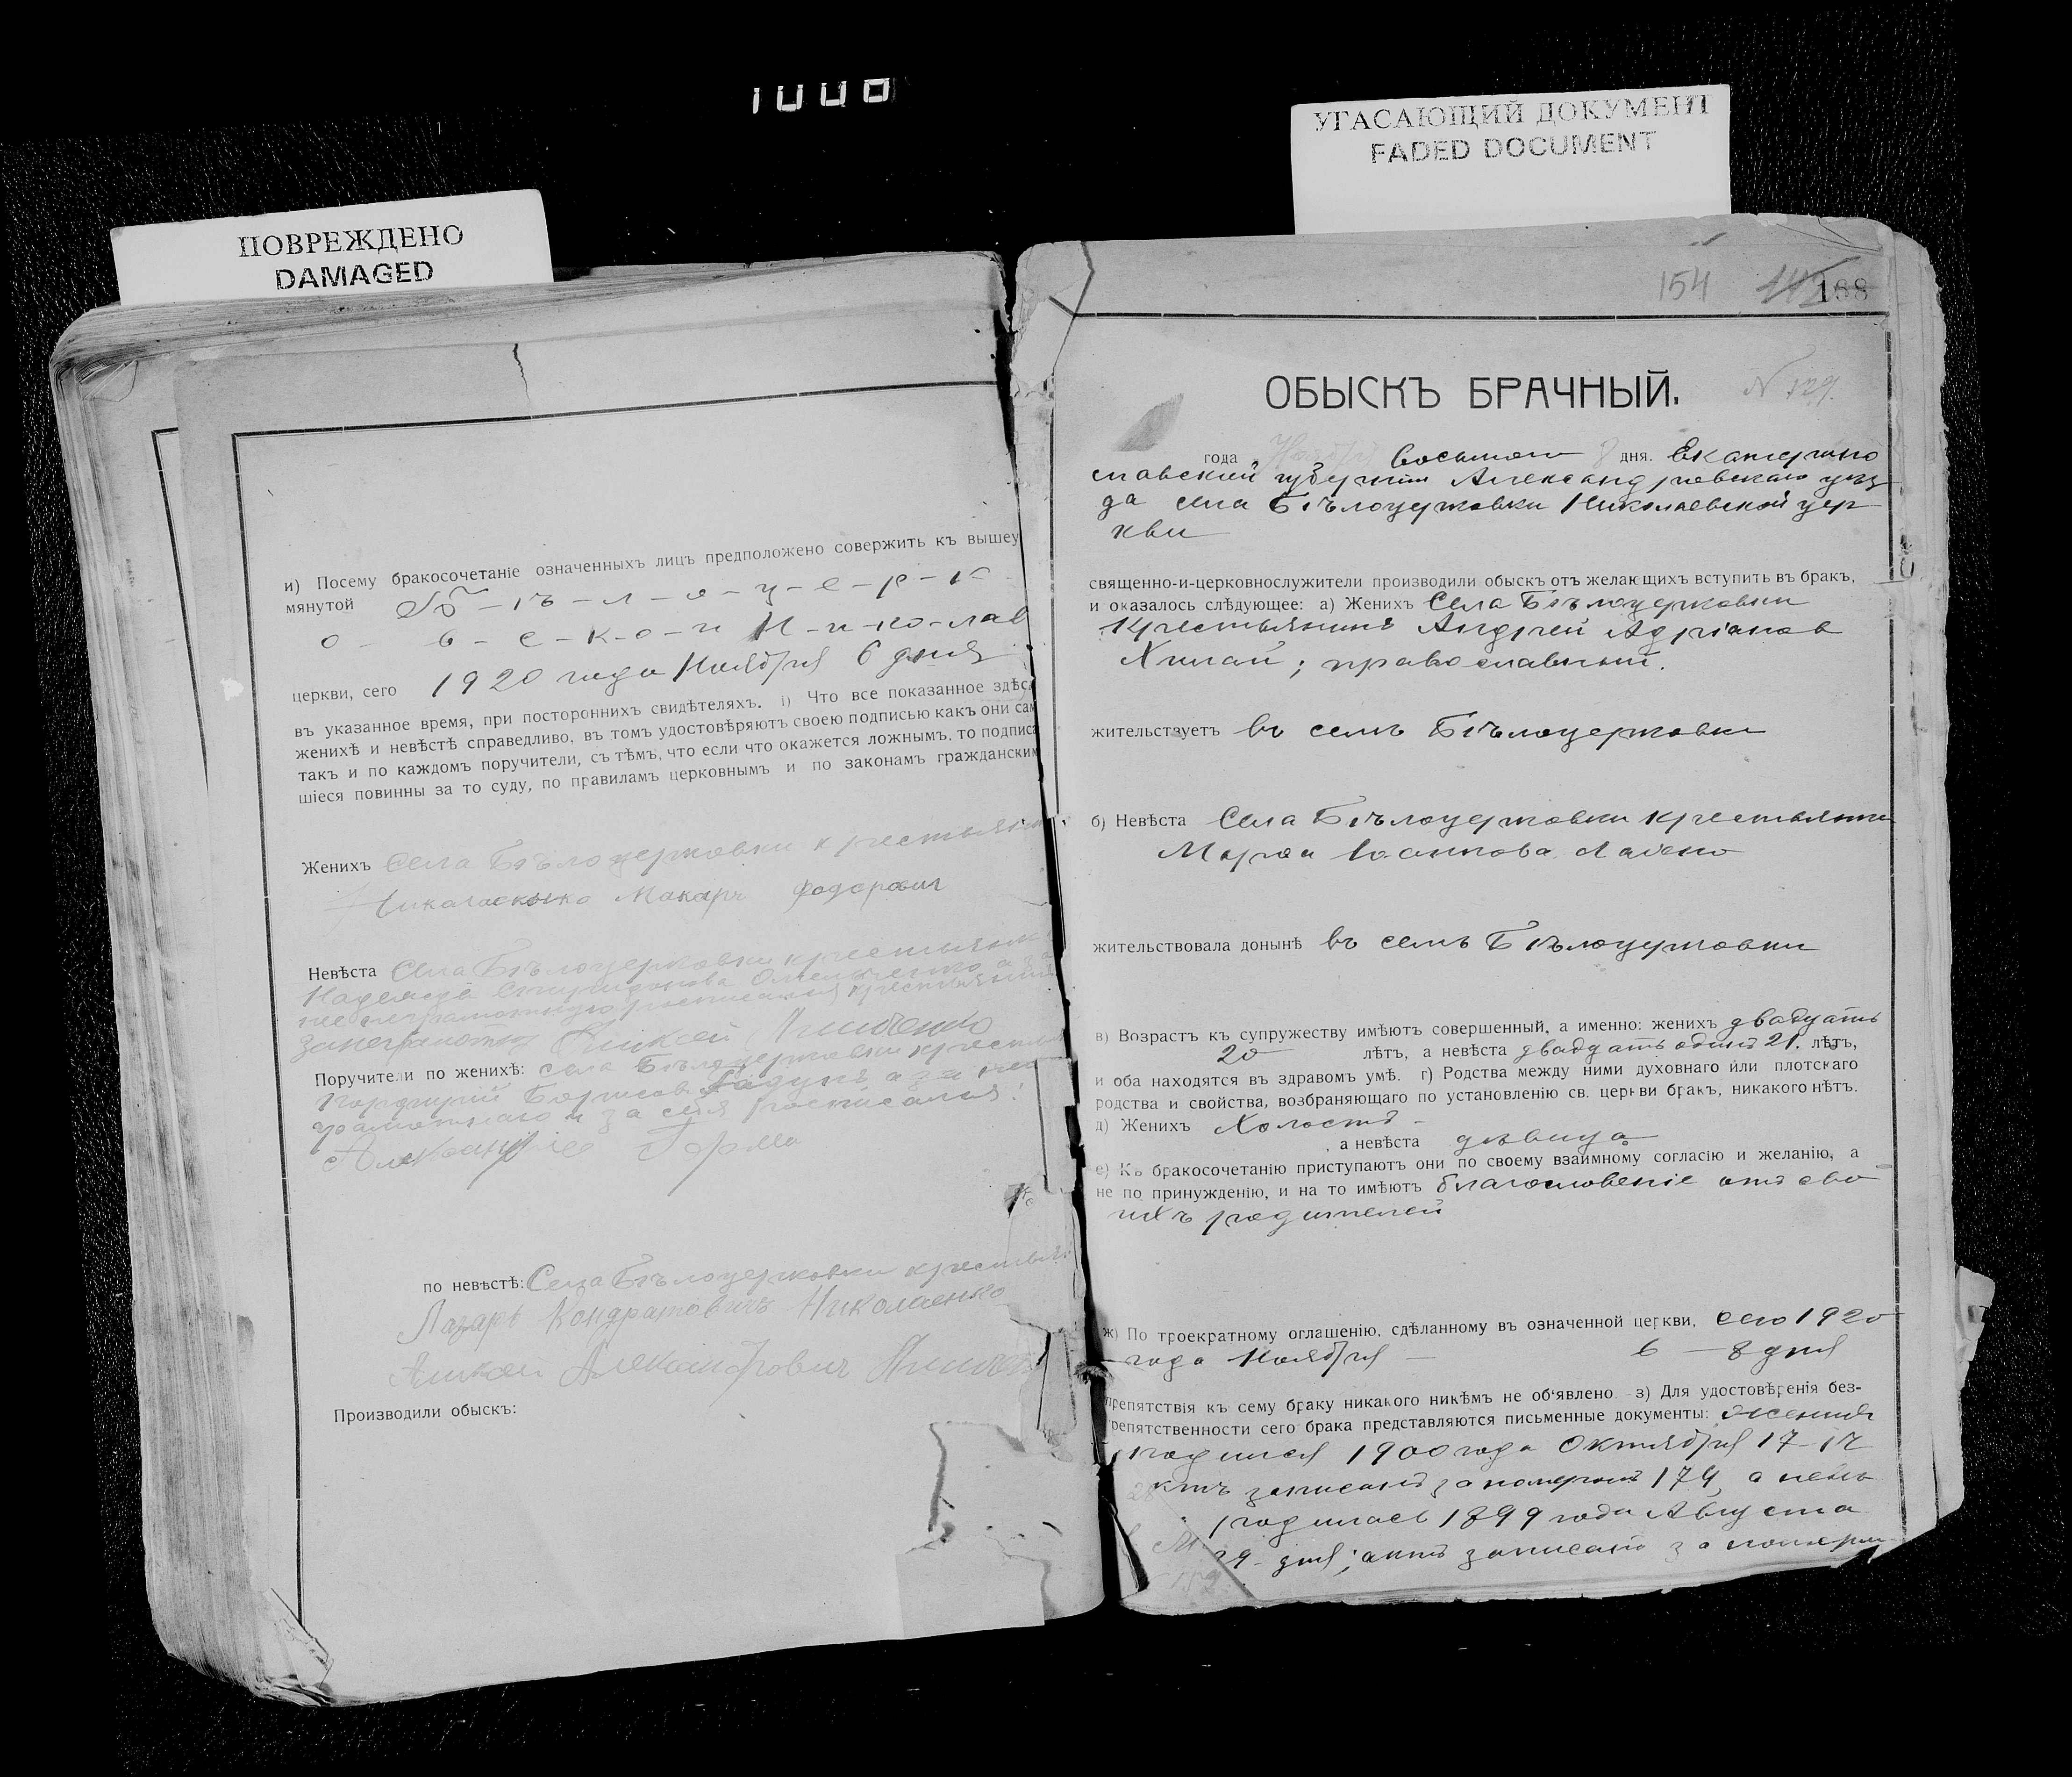 1008
УГАСАЮЩИЙ ДОКУМЕНТ
FADED DOCUMENT
ПОВРЕЖДЕНО
DAMAGED
и) Посему бракосочетаніе означенныхъ лицъ предположено совержить къ вышеу
мянутой Б-ѣ-л-о-ц-е-р-к
о - в-с-к-о-й Н-и-ко-лав
церкви, сего 1920 года Ноября 6 дня
въ указанное время, при постороннихъ свидѣтеляхъ. і) Что все показанное здѣс
женихѣ и невѣстѣ справедливо, въ томъ удостовѣряютъ своею подписью какъ они сам
такъ и по каждомъ поручители, съ тѣмъ, что если что окажется ложнымъ, то подписа
шіеся повинны за то суду, по правиламъ церковнымъ и по законамъ гражданским
Женихъ Села Бѣлоцерковки крестьянин
Макаръ Федорович
Невѣста Села Бѣлоцерковки крестьянк
Надежда Спиридонова Омельченко а за
нее неграмотную росписался крестьянин
Поручители по женихѣ: села Бѣлоцерковки крестьян
Порфирій Борисовъ Гадунъ, а за нег
рамотнаго и за себя росписался:
по невѣстѣ: Села Бѣлоцерковки крестьян
Лазарь Кондратовичъ Николаенко
Александрович
Производили обыскъ:
154 188
ОБЫСКЪ БРАЧНЫЙ.
N 129.
года Ноября восьмого 8 дня. Екатерино
славской губернiи Александровскаго уѣз
да села Бѣлоцерковки Николаевской цер
кви
священно-и-церковнослужители производили обыскъ отъ желающихъ вступить въ бракъ,
и оказалось слѣдующее: а) Женихъ Села Бѣлоцерковки
Крестьянинъ Андрей Адріанов
Хилай; православный.
жительствуетъ въ селѣ Бѣлоцерковки
б) Невѣста Села Бѣлоцерковки крестьянка
Марѳа Іоаннова
жительствовала донынѣ въ селѣ Бѣлоцерковки
в) Возрастъ къ супружеству имѣютъ совершенный, а именно: женихъ двадцать
20 лѣтъ, а невѣста двадцать одинъ 21. лѣтъ,
и оба находятся въ здравомъ умѣ. г) Родства между ними духовнаго или плотскаго
родства и свойства, возбраняющаго по установленію св. церкви бракъ, никакого нѣтъ.
д) Женихъ Холостъ
, а невѣста дѣвица
е) Къ бракосочетанію приступаютъ они по своему взаимному согласію и желанію, а
не по принужденію, и на то имѣютъ благословеніе отъ сво
ихъ родителей
ж) По троекратному оглашенію, сдѣланному въ означенной церкви, сего 1920
года Ноября — 6 — 8 дня
препятствія къ сему браку никакого никѣмъ не об'явлено. з) Для удостовѣренія без-
репятственности сего брака представляются письменные документы: Женихъ
родился 1900 года Октября 17-
актъ записанъ за номеромъ 174, а
родилась 1899 года Августа
29 - дня; актъ записанъ за номером